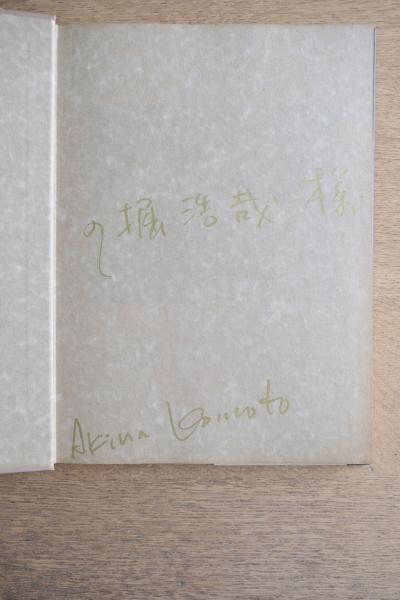 堀浩哉 様
Akira Komoto